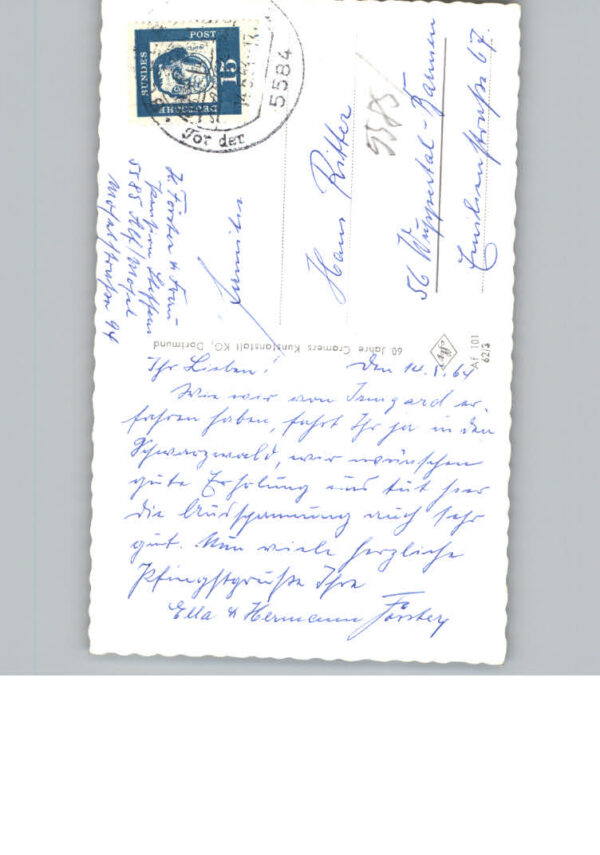 Ihr Lieben! Den 14.5.64
Wie wir von Irmgard er-
fahren haben, fahrt Ihr ja in den
Schwarzwald, wir wünschen
gute Erholung uns tut hier
die Ausspannung auch sehr
gut. Nun viele herzliche
Pfingstgrüße Ihre
Ella u Hermann Förster
H Förster u Frau
Pension Steffens
5585 Alf/Mosel
Moselstraße 94
Familie
Hans Ritter
5585
56 Wuppertal-Barmen
Emilienstraße 67.
60 Jahre Cramers Kunstanstalt KG, Dortmund
Af 101
62/3
DEUTSCHE
BUNDES
POST
15
5584
Tor der